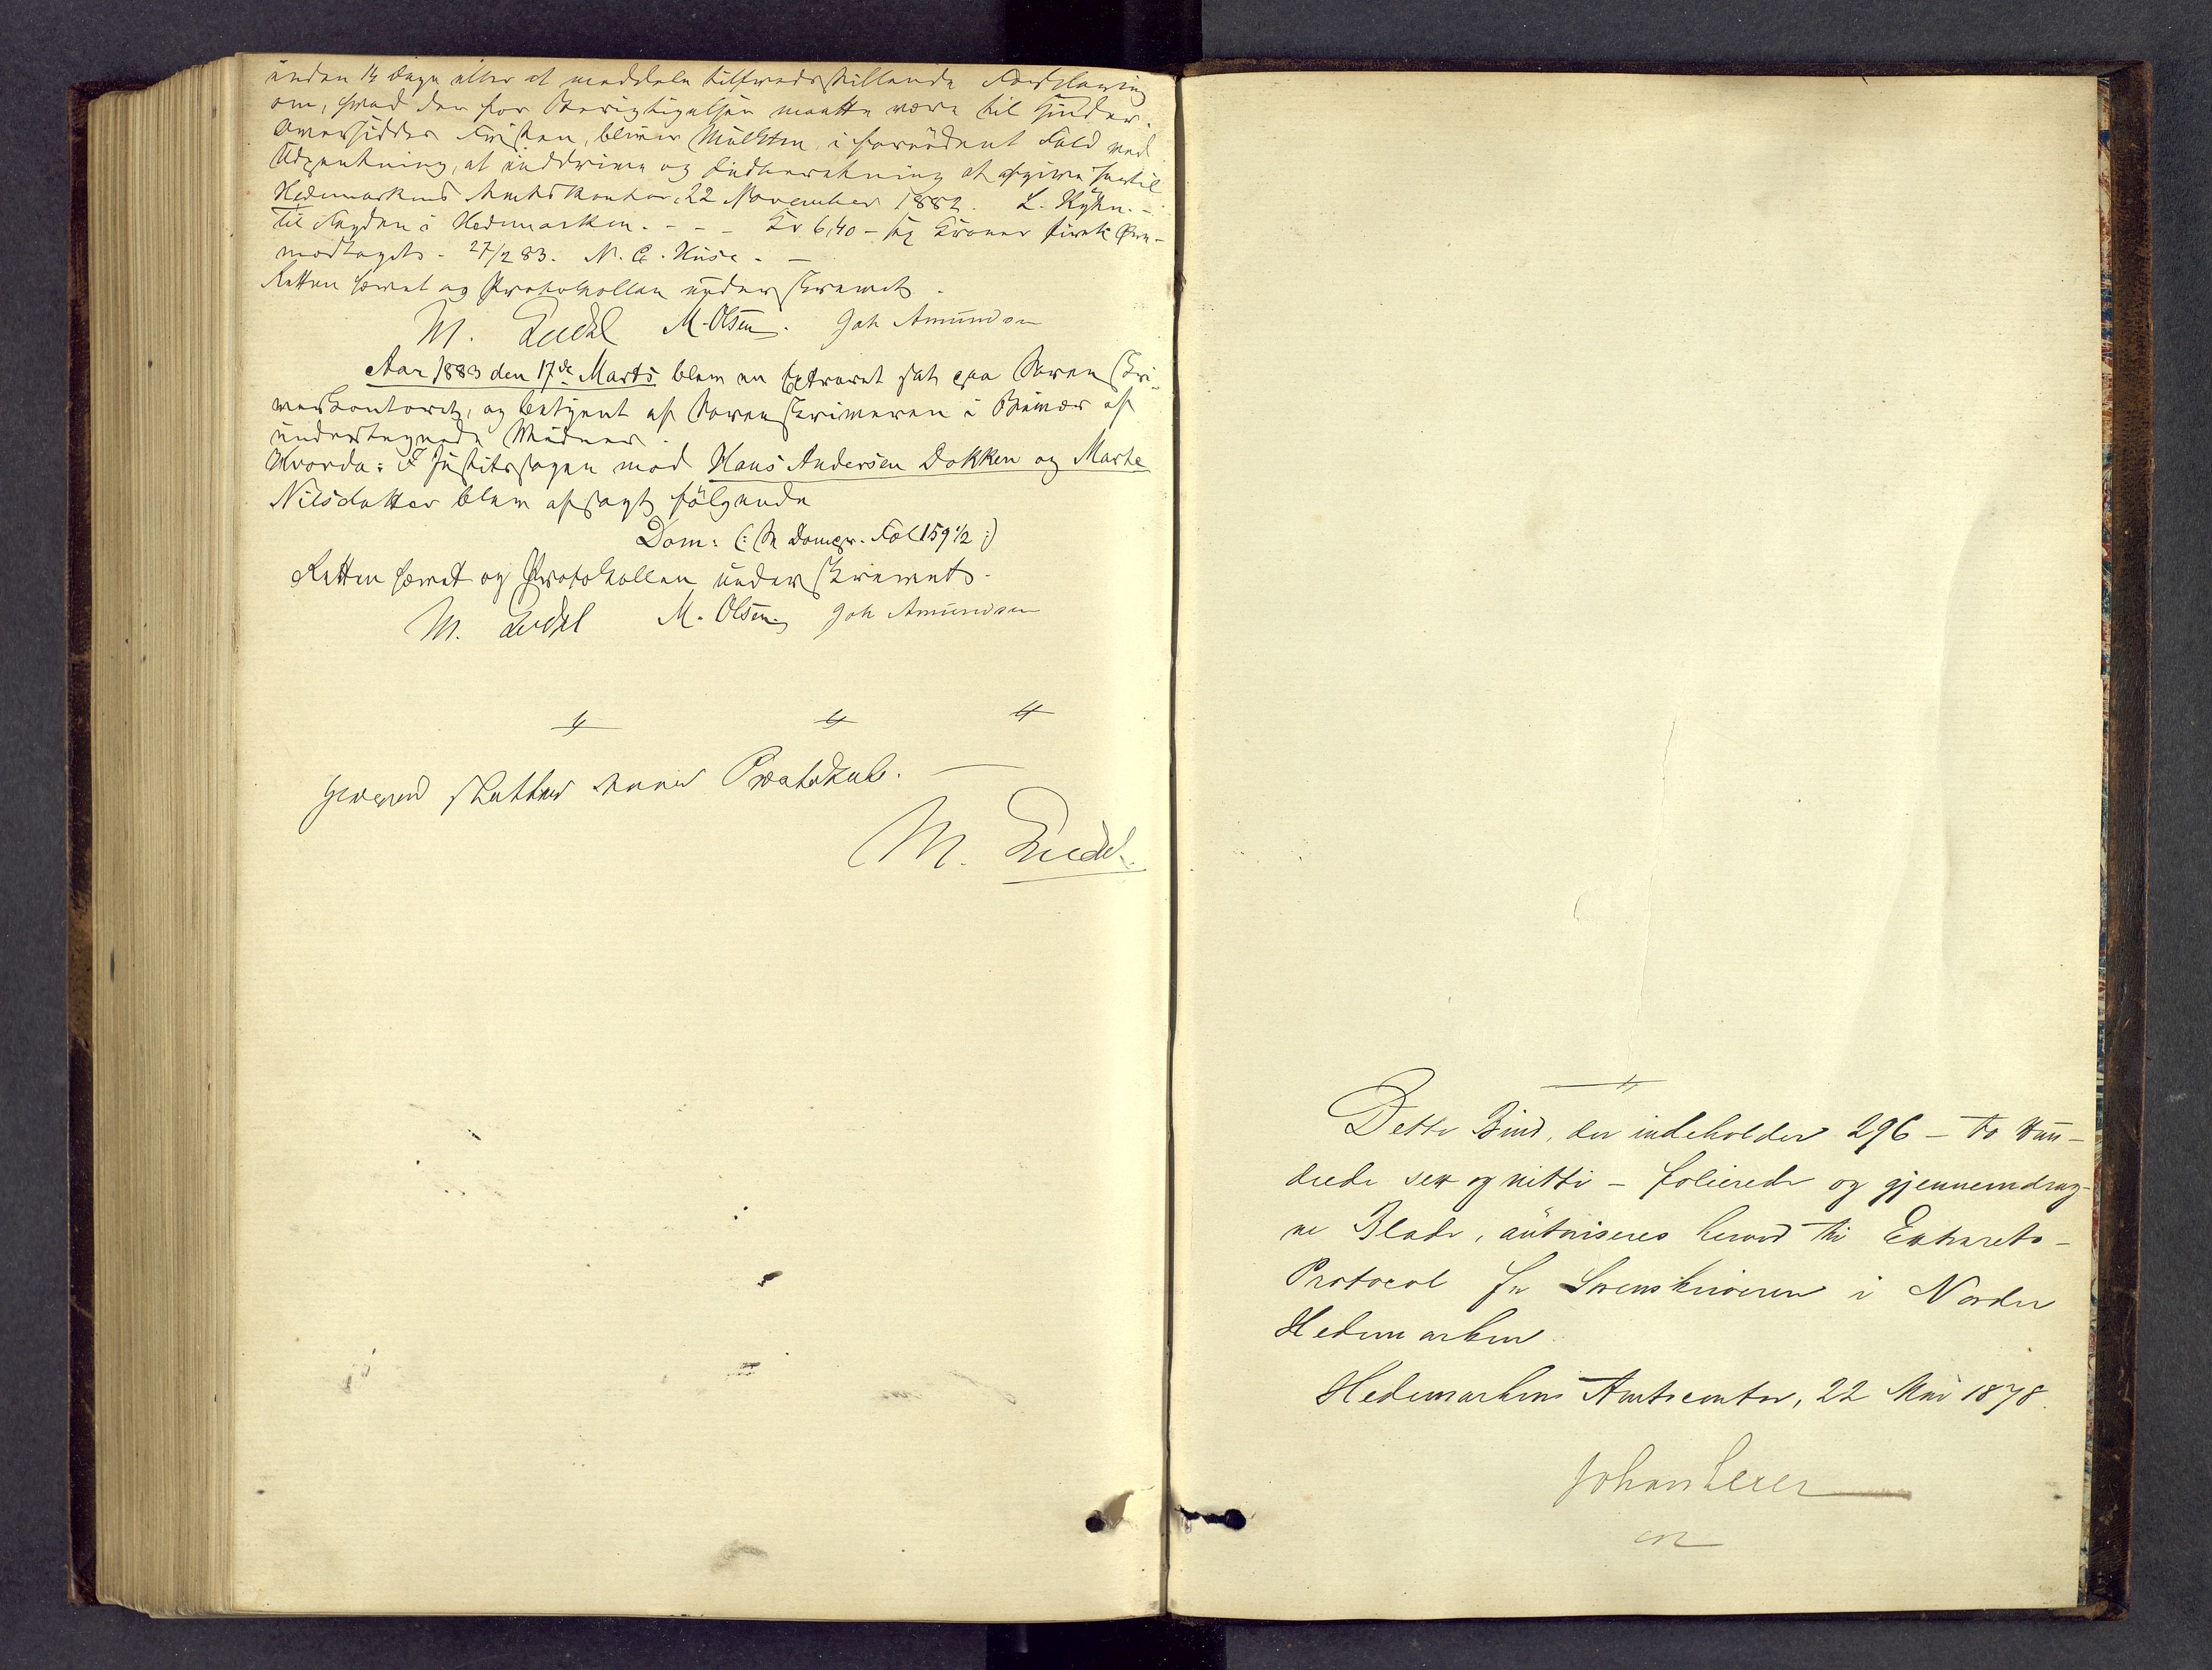 inden 14 Dage eller at meddele tilfredsstillende Forklaring
om, hvad der for Berigtigelsen maatte være til Hinder.
Oversiddes Fristen, bliver Mulkten, i fornødent Fald ved
Udpantning, at inddrive og Indberetning at afgive hertil
Hedemarkens Amtskontor, 22 November 1882. L. Kyhn. -
Til Fogden i Hedemarken. - - - Kr 6,40 - sex Kroner firti Øre -
modtaget. 27/2 83. N. C. Huse. -
Retten hævet og Protokollen underskrevet.
M. M. Olsen. Joh Amundsen
Aar 1883 den 17de Marts blev en Extraret sat paa Sorenskri-
verkontoret, og betjent af Sorenskriveren i Overvær af
undertegnede Vidner.
Hvorda: I Justitssagen mod Hans Andersen Dokken og Marte
Nilsdatter blev afsagt følgende
Dom: (: Se Dompr. Fol 159 1/2 :)
Retten hævet og Protokollen underskrevet.
M. M. Olsen. Joh Amundsen
Herved sluttes denne Protokol. -
M.
Dette Bind, der indeholder 296 - to Hun-
drede sex og nitti - folierede og gjennemdrag-
ne Blade, autoriseres herved til Extrarets-
Protocol for Sorenskriveren i Nordre
Hedemarken
Hedemarkens Amtscontor, 22 Mai 1878.